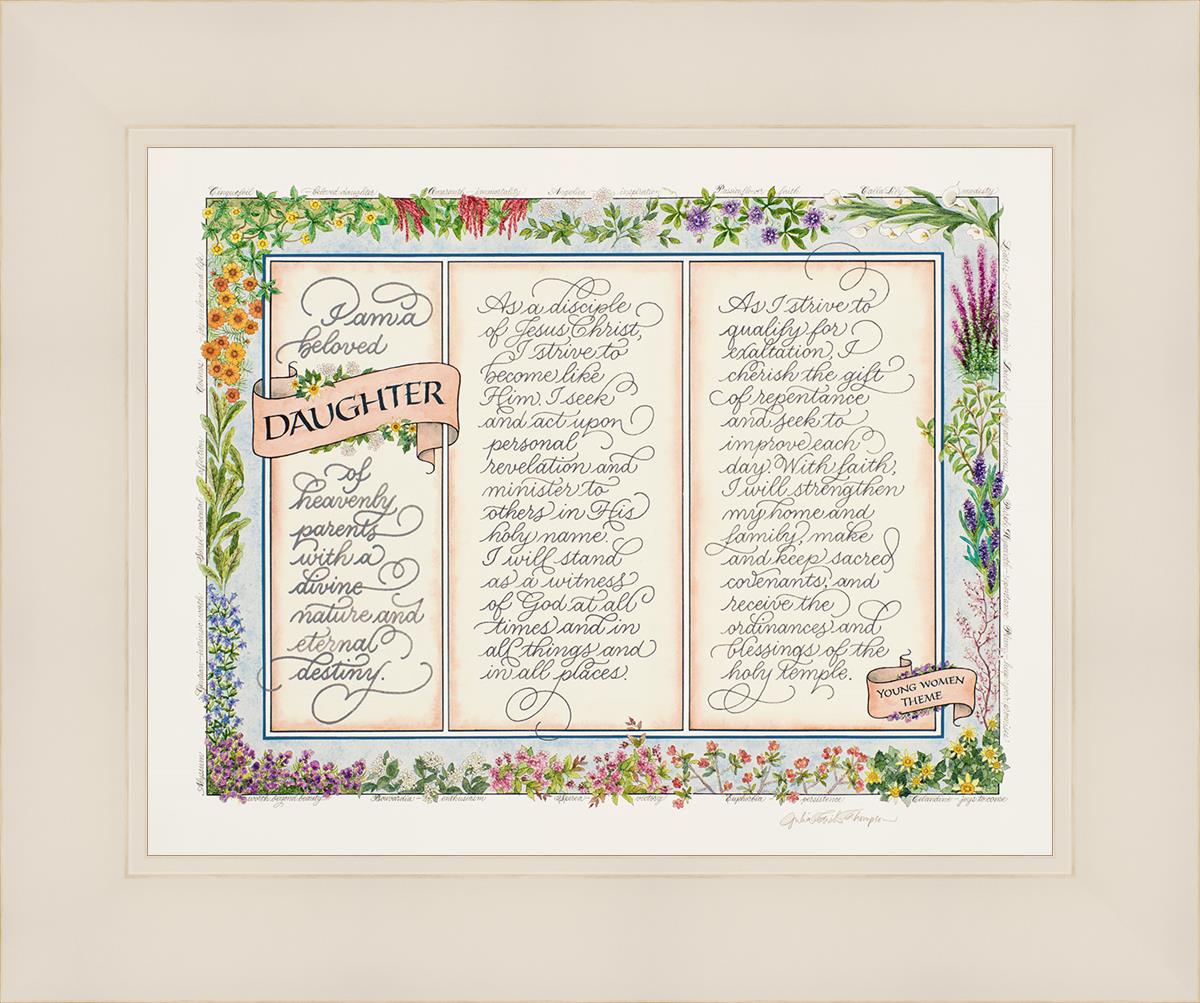 Cinquefoil – beloved daughter Amaranth – immortality Angelica – inspiration Passionflower – faith Calla Lily – modesty
I am a
beloved
DAUGHTER
of
heavenly
parents
with a
divine
nature and
eternal
destiny.
As a disciple
of Jesus Christ,
I strive to
become like
Him. I seek
and act upon
personal
revelation and
minister to
others in His
holy name.
I will stand
as a witness
of God at all
times and in
all things and
in all places.
As I strive to
qualify for
exaltation, I
cherish the gift
of repentance
and seek to
improve each
day. With faith,
I will strengthen
my home and
family, make
and keep sacred
covenants, and
receive the
ordinances and
blessings of the
holy temple.
YOUNG WOMEN
THEME
Alyssum – worth beyond beauty Bouvardia – enthusiasm Spirea – victory Euphorbia – persistence Celandine – joys to come